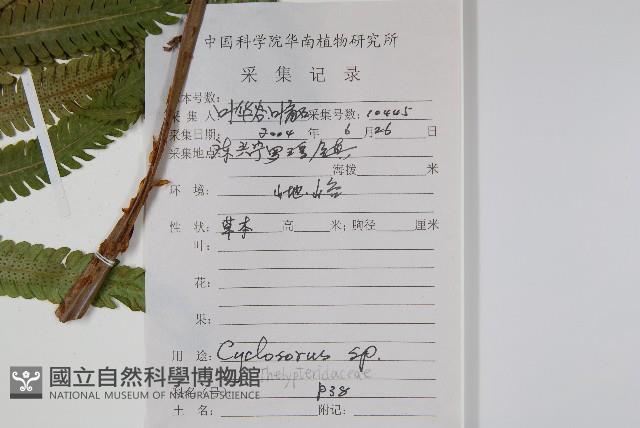 中国科学院华南植物研究所
采集记录
本号数:
采集人 叶华谷 采集号数: 10445
采集日期: 2004 年 6 月 26 日
采集地点:
海拔 米
环境: 山地.山谷
性状: 草本 高 米; 胸径 厘米
叶:
花:
果:
用途: Cyclosorus sp.
Thelypteridaceae
P38
土名: 附记:
國立自然科學博物館
NATIONAL MUSEUM OF NATURAL SCIENCE